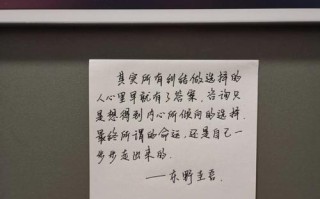 其实所有纠结做选择的
人心里早就有了答案，咨询只
是想得到内心所倾向的选择，
最终所谓的命运，还是自己一
步步走出来的。
——东野圭吾